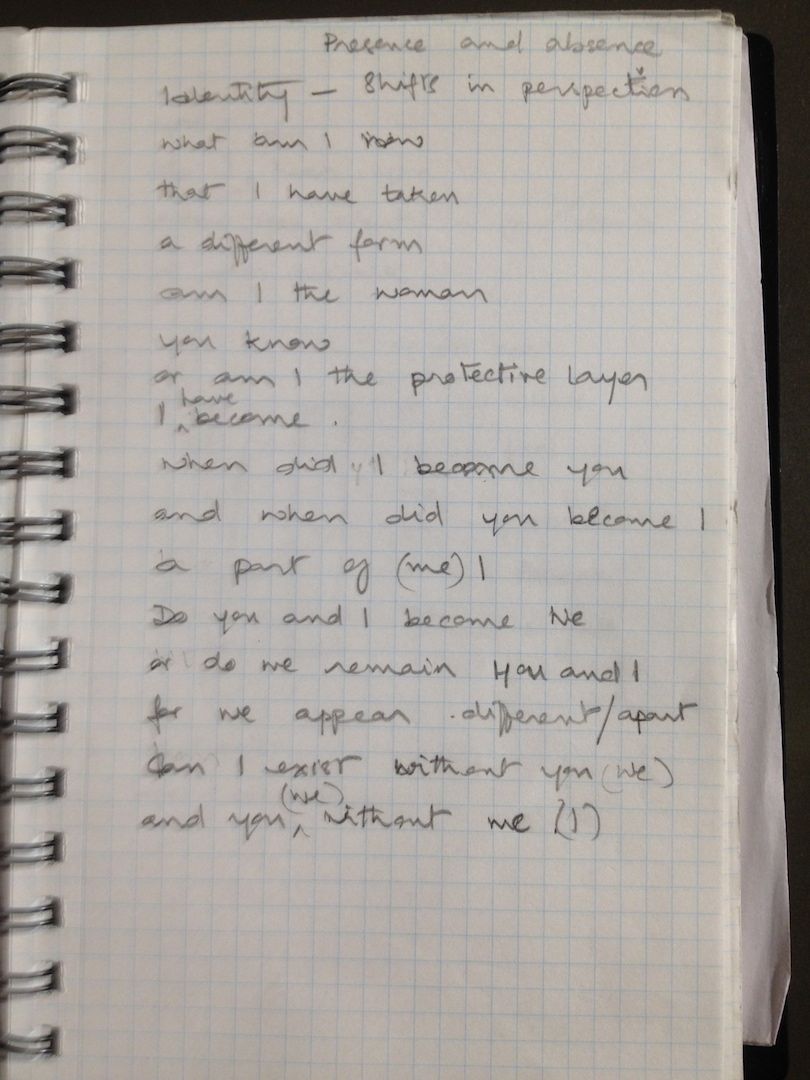 Presence and absence
Identity - Shifts in perspection
what am I now
that I have taken
a different form
am I the woman
you know
or am I the protective layer
have
I ^ become .
when did I become you
and when did you become I
a part of (me) I
Do you and I become We
or do we remain You and I
for we appear different/apart
Can I exist without you (we)
(we)
and you ^ without me (I)